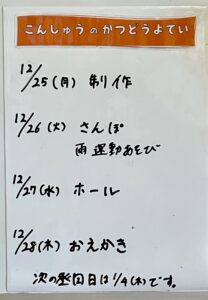 こんしゅうのかつどうよてい
12/25(月) 制作
12/26(火) さんぽ
雨 運動あそび
12/27(水) ホール
12/28(木) おえかき
次の登園日は1/4(木)です。